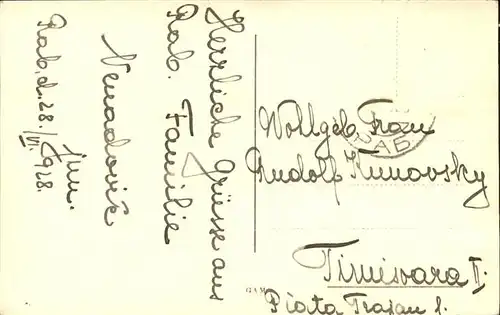 Herrliche Grüsse aus
Rab. Familie
Nenadović
jun.
Rab, d. 28./VI. 1928.
Wollgeb Frau
Rudolf Kunovsky
Timisoara II.
Piata Traian 1.
RAB